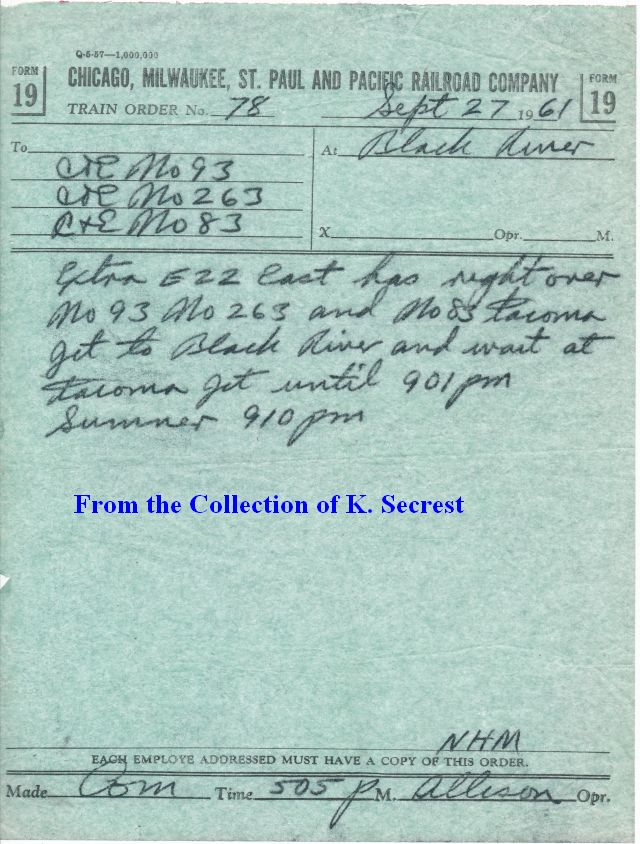 Q-5-57—1,000,000
FORM 19 CHICAGO, MILWAUKEE, ST. PAUL AND PACIFIC RAILROAD COMPANY FORM 19
TRAIN ORDER No. 78 Sept 27 1961
To At Black River
C&E No 93
C&E No 263
C&E No 83
X Opr. M.
Extra E22 East has right over
No 93 No 263 and No 83 Tacoma
Jct to Black River and wait at
Tacoma Jct until 901 pm
Sumner 910 pm
From the Collection of K. Secrest
NHM
EACH EMPLOYE ADDRESSED MUST HAVE A COPY OF THIS ORDER.
Made Com Time 505 P M. Allison Opr.